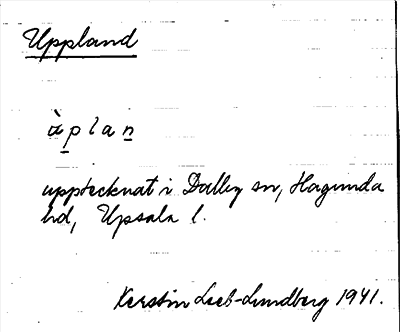 Uppland
àplan
upptecknat i Dalby sn, Hagunda
hd, Upsala l.
Kerstin Leeb-Lundberg 1941.